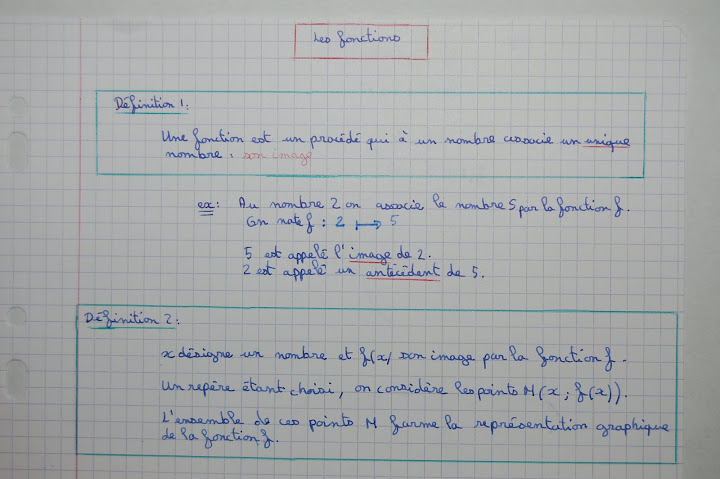 Les fonctions
Définition 1:
Une fonction est un procédé qui à un nombre associe un unique
nombre : son image
ex: Au nombre 2 on associe le nombre 5 par la fonction f.
On note f : 2 ⟼ 5
5 est appelé l'image de 2.
2 est appelé un antécédent de 5.
Définition 2:
x désigne un nombre et f(x) son image par la fonction f.
Un repère étant choisi, on considère les points M(x ; f(x)).
L'ensemble de ces points M forme la représentation graphique
de la fonction f.